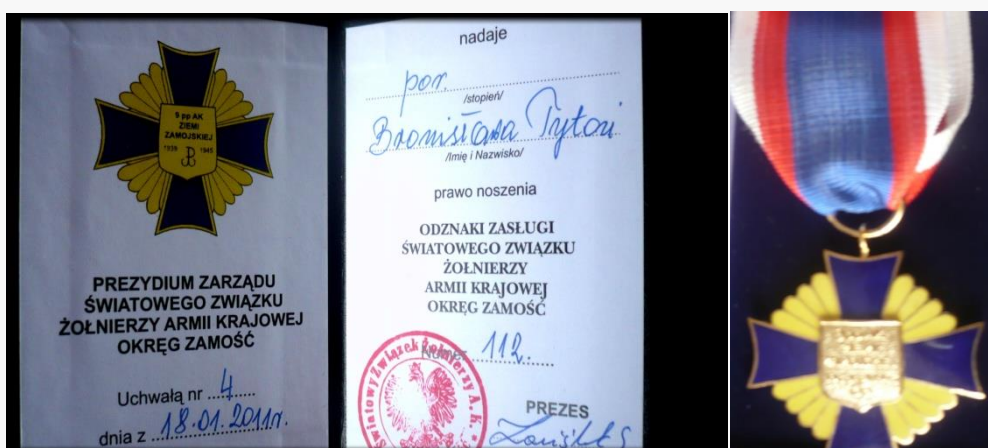 9 pp AK
ZIEMI
ZAMOJSKIEJ
1939 1945
PREZYDIUM ZARZĄDU
ŚWIATOWEGO ZWIĄZKU
ŻOŁNIERZY ARMII KRAJOWEJ
OKRĘG ZAMOŚĆ
Uchwałą nr 4
dnia z 18.01.2011r.
nadaje
por.
/stopień/
Bronisława Tytoń
/Imię i Nazwisko/
prawo noszenia
ODZNAKI ZASŁUGI
ŚWIATOWEGO ZWIĄZKU
ŻOŁNIERZY
ARMII KRAJOWEJ
OKRĘG ZAMOŚĆ
Numer 112.
Światowy Związek Żołnierzy A.K.
PREZES